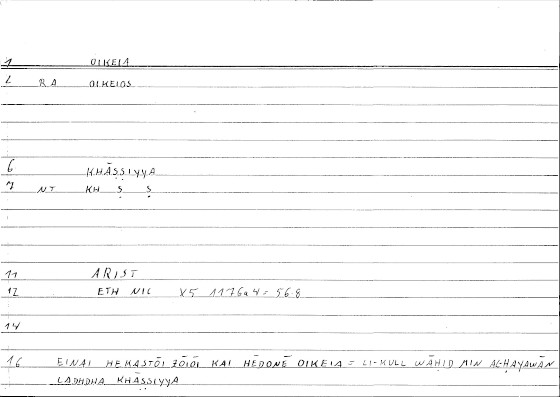 1 OIKEIA
2 RA OIKEIOS
6 KHĀṢṢIYYA
7 NT KH Ṣ Ṣ
11 ARIST
12 ETH NIC X5 1176a4 = 568
14
16 EINAI HEKASTŌI ZŌIŌI KAI HĒDONĒ OIKEIA = LI-KULL WĀḤID MIN AL-ḤAYAWĀN
LADHDHA KHĀṢṢIYYA